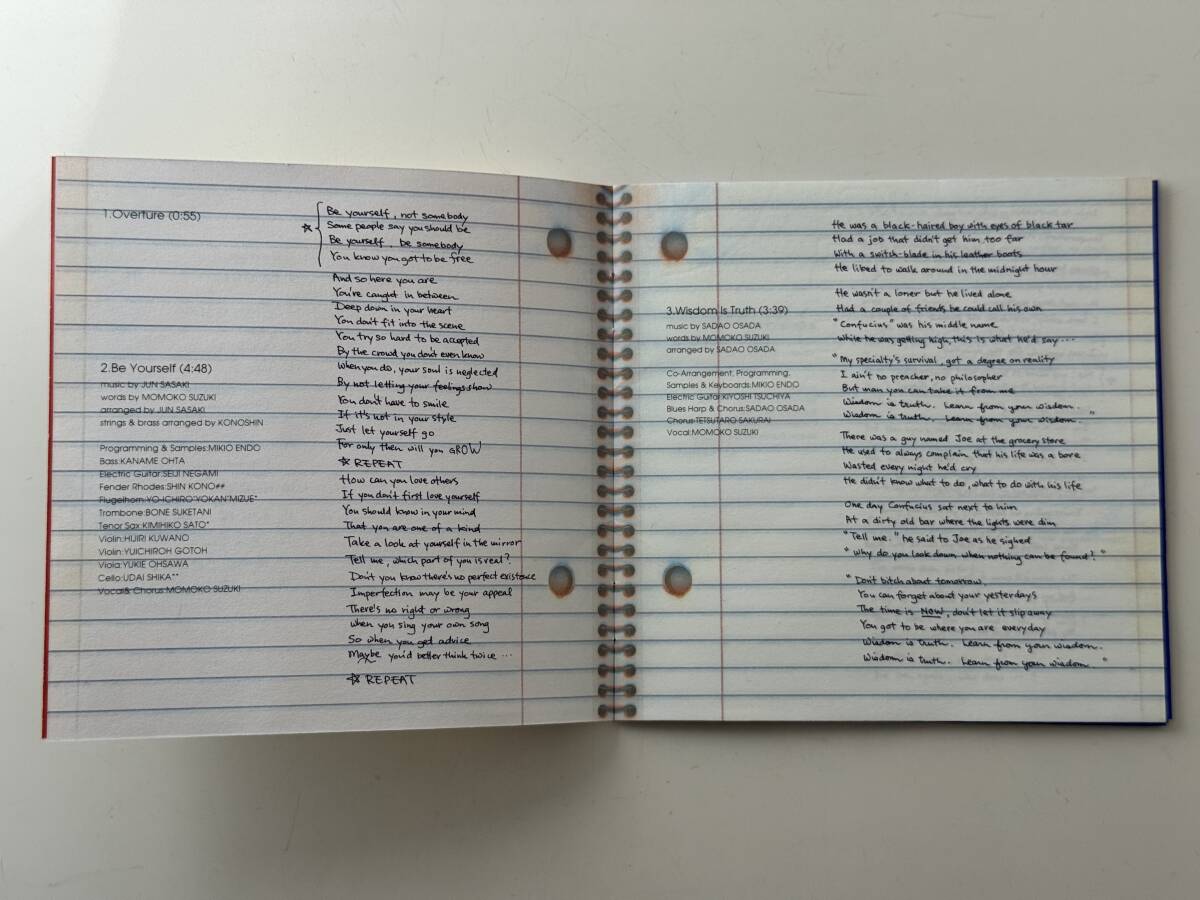 1.Overture (0:55)
2.Be Yourself (4:48)
music by JUN SASAKI
words by MOMOKO SUZUKI
arranged by JUN SASAKI
strings & brass arranged by KONOSHIN
Programming & Samples:MIKIO ENDO
Bass:KANAME OHTA
Electric Guitar:SEIJI NEGAMI
Fender Rhodes:SHIN KONO##
Flugelhorn:YO-ICHIRO"YOKAN"MIZUE*
Trombone:BONE SUKETANI
Tenor Sax:KIMIHIKO SATO*
Violin:HIJIRI KUWANO
Violin:YUICHIROH GOTOH
Viola:YUKIE OHSAWA
Cello:UDAI SHIKA**
Vocal& Chorus:MOMOKO SUZUKI
Be yourself, not somebody
☆ Some people say you should be
Be yourself, be somebody
You know you got to be free
And so here you are
You're caught in between
Deep down in your heart
You don't fit into the scene
You try so hard to be accepted
By the crowd you don't even know
When you do, your soul is neglected
By not letting your feelings show
You don't have to smile
If it's not in your style
Just let yourself go
For only then will you GROW
☆ REPEAT
How can you love others
If you don't first love yourself
You should know in your mind
That you are one of a kind
Take a look at yourself in the mirror
Tell me, which part of you is real?
Don't you know there's no perfect existance
Imperfection may be your appeal
There's no right or wrong
When you sing your own song
So when you get advice
Maybe you'd better think twice ...
☆ REPEAT
3.Wisdom Is Truth (3:39)
music by SADAO OSADA
words by MOMOKO SUZUKI
arranged by SADAO OSADA
Co-Arrangement, Programming,
Samples & Keyboards:MIKIO ENDO
Electric Guitar:KIYOSHI TSUCHIYA
Blues Harp & Chorus:SADAO OSADA
Chorus:TETSUTARO SAKURAI
Vocal:MOMOKO SUZUKI
He was a black-haired boy with eyes of black tar
Had a job that didn't get him too far
With a switch-blade in his leather boots
He liked to walk around in the midnight hour
He wasn't a loner but he lived alone
Had a couple of friends he could call his own
"Confucius" was his middle name
While he was getting high, this is what he'd say ...
"My specialty's survival, got a degree on reality
I ain't no preacher, no philosopher
But man you can take it from me
Wisdom is truth. Learn from your wisdom.
Wisdom is truth. Learn from your wisdom. "
There was a guy named Joe at the grocery store
He used to always complain that his life was a bore
Wasted every night he'd cry
He didn't know what to do, what to do with his life
One day Confucius sat next to him
At a dirty old bar where the lights were dim
"Tell me." he said to Joe as he sighed
"Why do you look down when nothing can be found?"
"Don't bitch about tomorrow,
You can forget about your yesterdays
The time is NOW, don't let it slip away
You got to be where you are everyday
Wisdom is truth. Learn from your wisdom.
Wisdom is truth. Learn from your wisdom. "